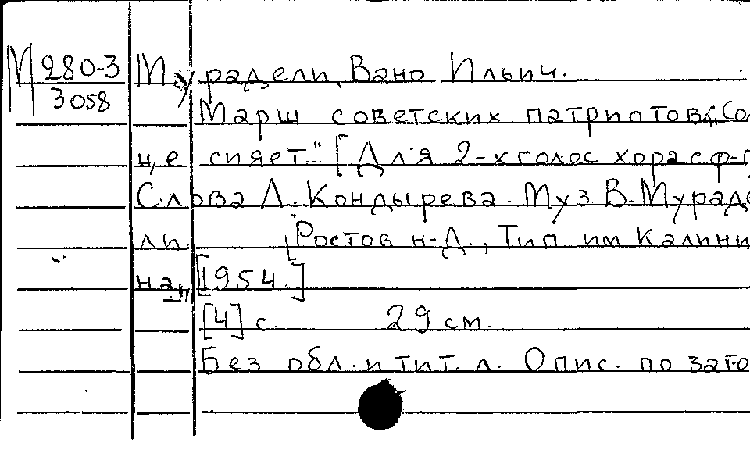 М 280-3 Мурадели, Вано Ильич.
3058
Марш советских патриотов. "Со
нце сияет." [Для 2-х голос хора с ф-п
Слова Л. Кондырева. Муз В. Мураде
ли [Ростов н-Д., Тип им Калини
на, [1954.]
[4] с. 29 см.
Без обл. и тит. л. Опис. по заго